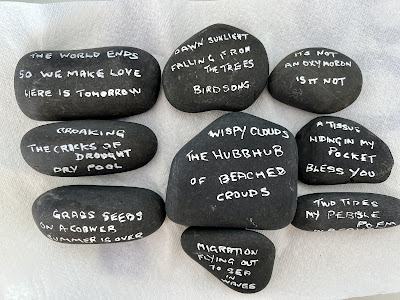 THE WORLD ENDS
SO WE MAKE LOVE
HERE IS TOMORROW
DAWN SUNLIGHT
FALLING FROM
THE TREES
BIRDSONG
IT'S NOT
AN OXYMORON
IS IT NOT
CROAKING
THE CRICKS OF
DROUGHT
DRY POOL
WISPY CLOUDS
THE HUBBHUB
OF BEACHED
CROUDS
A TISSUE
HIDING IN MY
POCKET
BLESS YOU
GRASS SEEDS
ON A COBWEB
SUMMER IS OVER
TWO TIDES
MY PEBBLE
POEM
MIGRATION
FLYING OUT
TO SEA
IN
WAVES